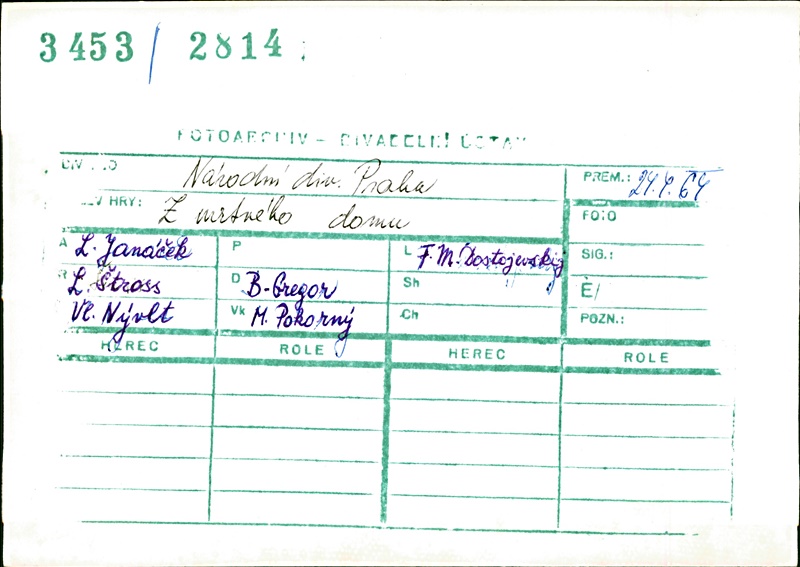 3453 / 2814
FOTOARCHIV – DIVADELNÍ ÚSTAV
DIVADLO Národní div. Praha PREM.: 24.4.64
HRY: Z mrtvého domu FOTO
A L. Janáček P L F. M. Dostojevskij SIG.:
R L. Štross D B. Gregor Sh Č/
Vl. Nývlt Vk M. Pokorný Ch POZN.:
HEREC ROLE HEREC ROLE